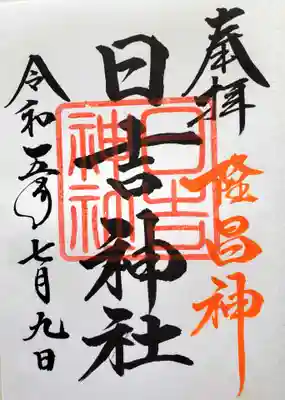 奉拝
隆昌神
日吉神社
日吉神社
令和五年七月九日